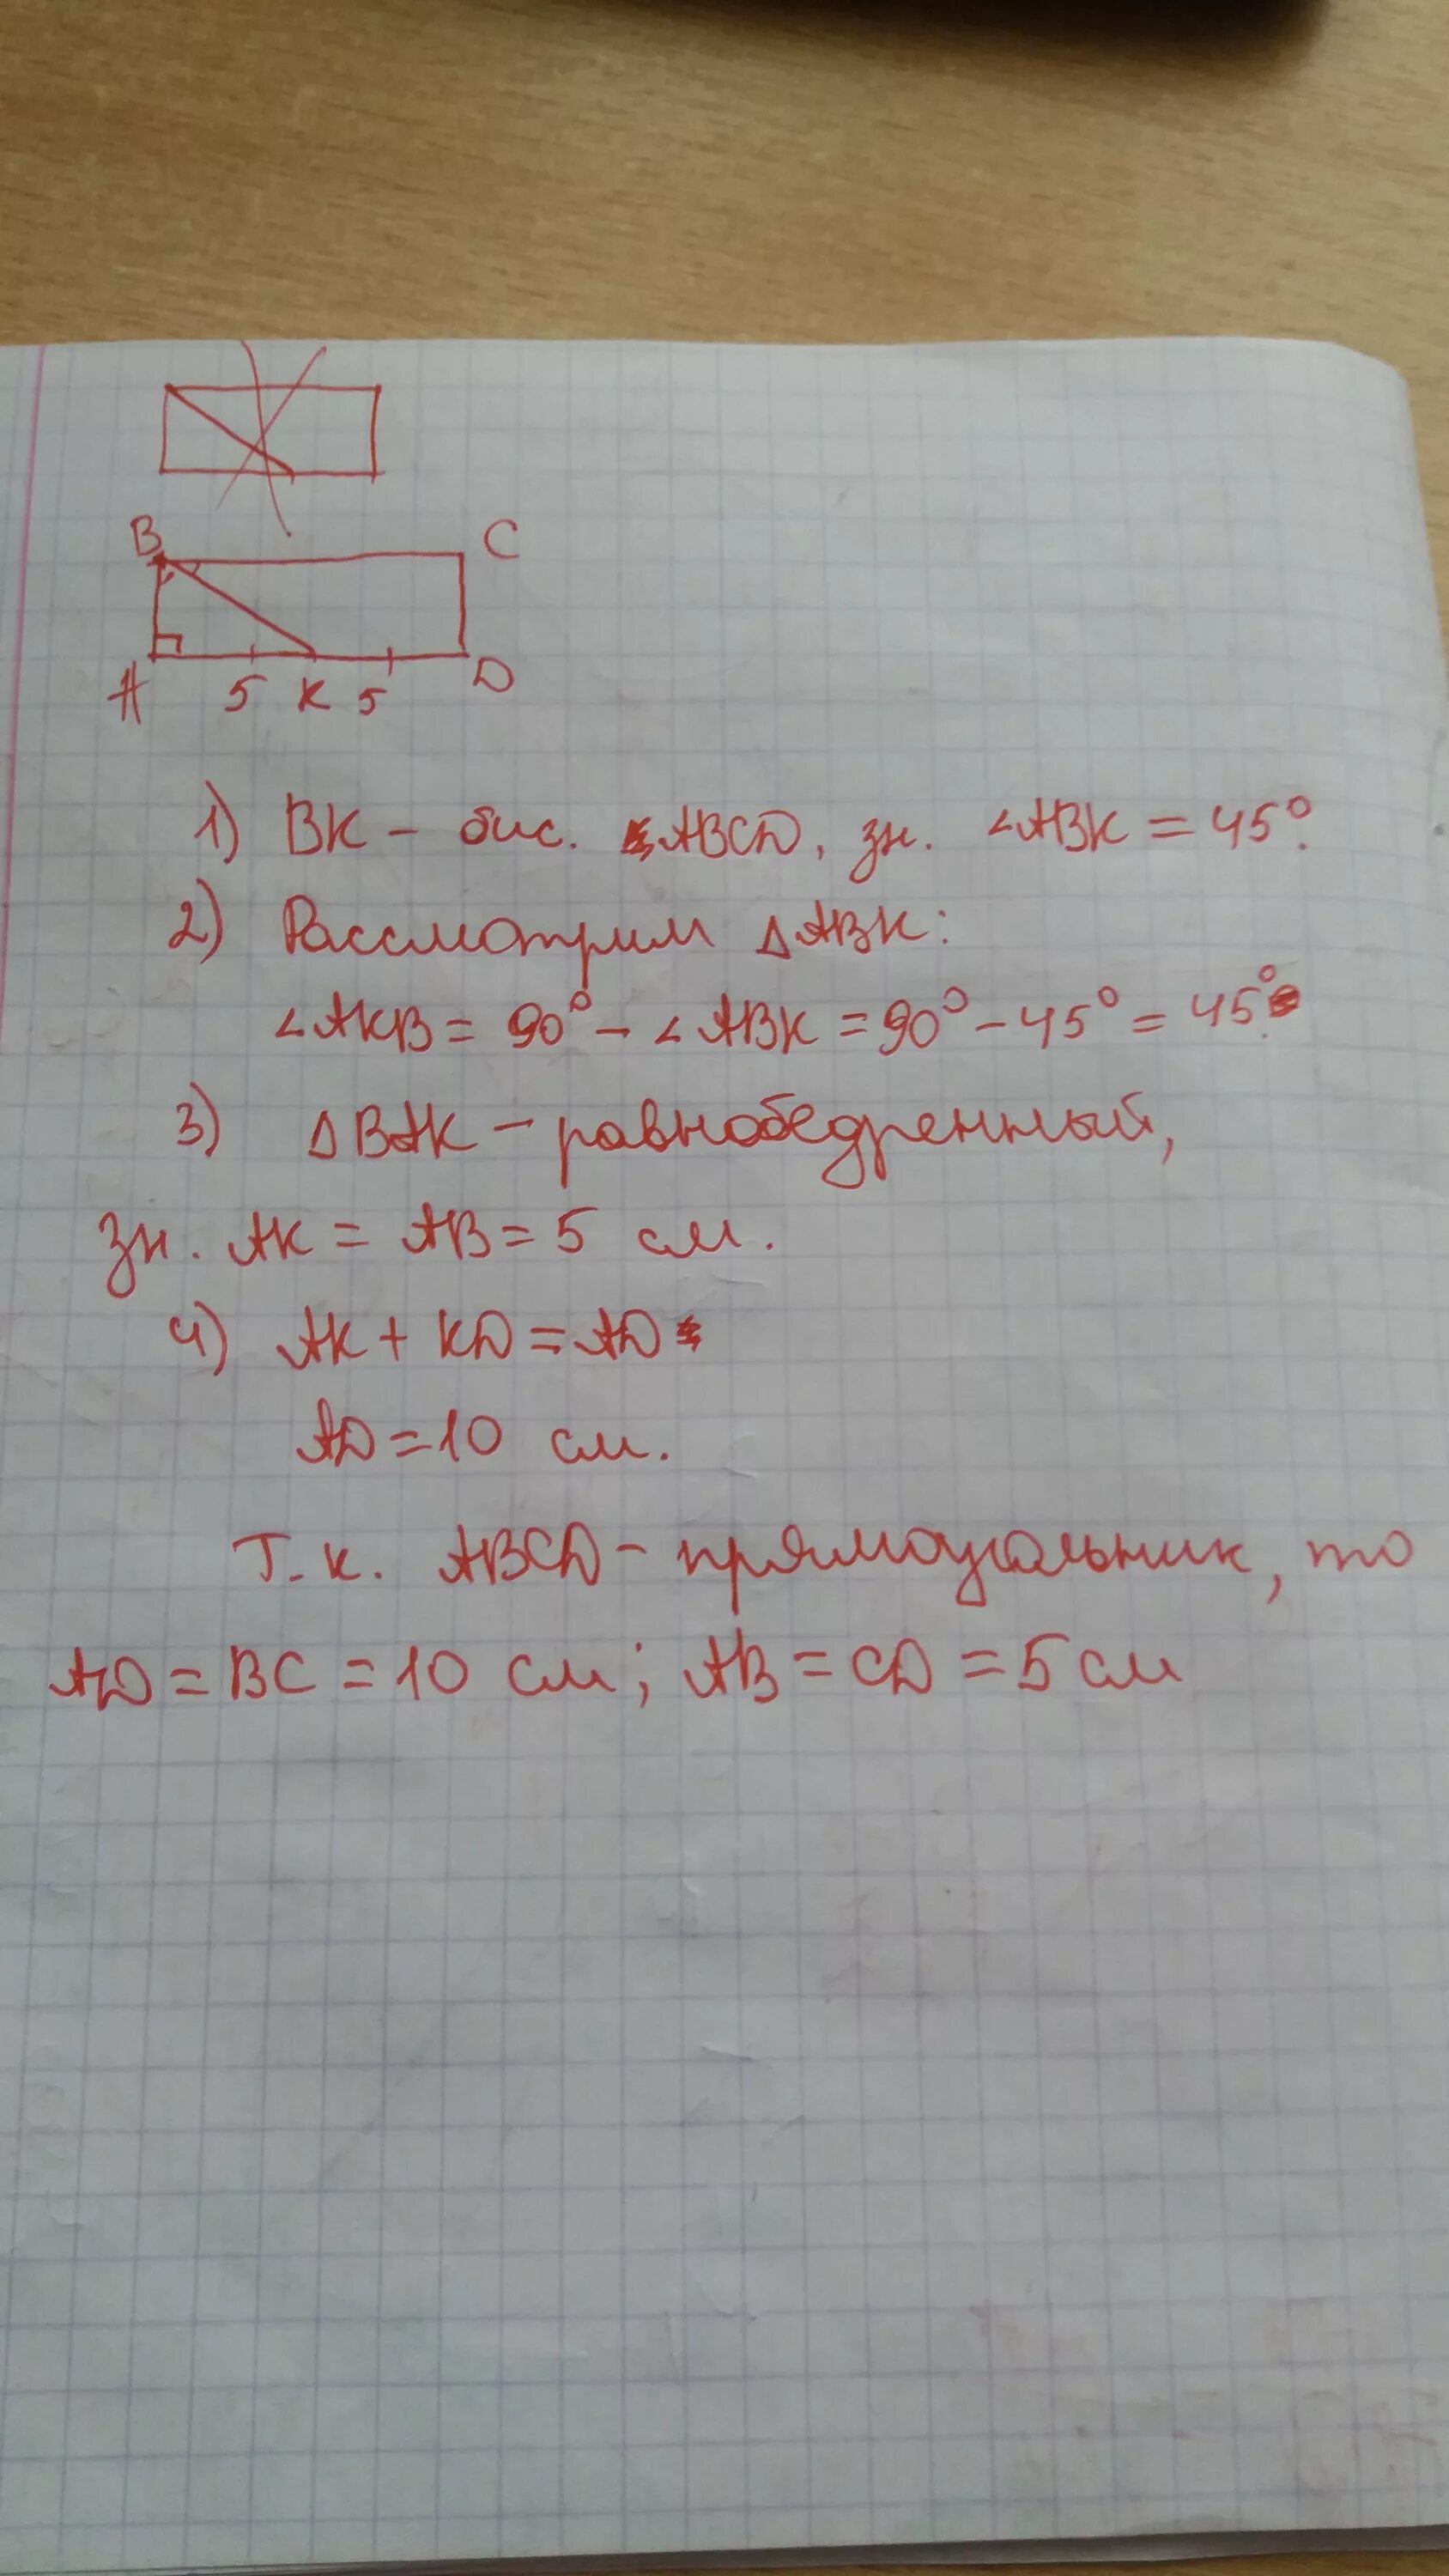 B C
A 5 K 5 D
1) BK – бис. ABCD, зн. ∠ABK = 45°.
2) Рассмотрим ΔABK:
∠AKB = 90° – ∠ABK = 90° – 45° = 45°.
3) ΔBAK – равнобедренный,
зн. AK = AB = 5 см.
4) AK + KD = AD
AD = 10 см.
Т.к. ABCD – прямоугольник, то
AD = BC = 10 см; AB = CD = 5 см